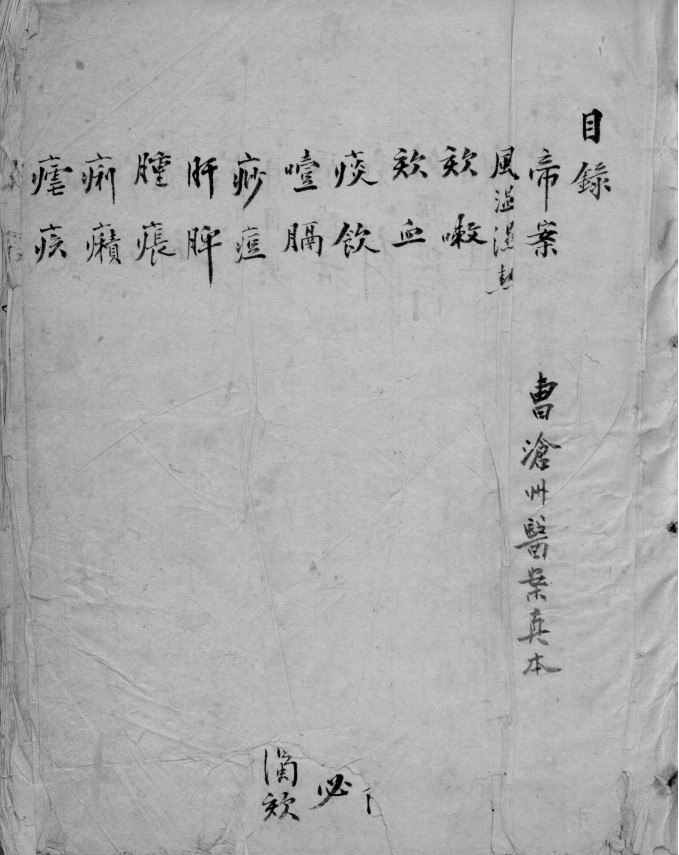 目錄
帝案
曹滄州醫案真本
風溫濕熱
欬嗽
欬血
痰飲
噎膈
痧痘
肝脾
腫脹
痢
瘧痎
必
欬